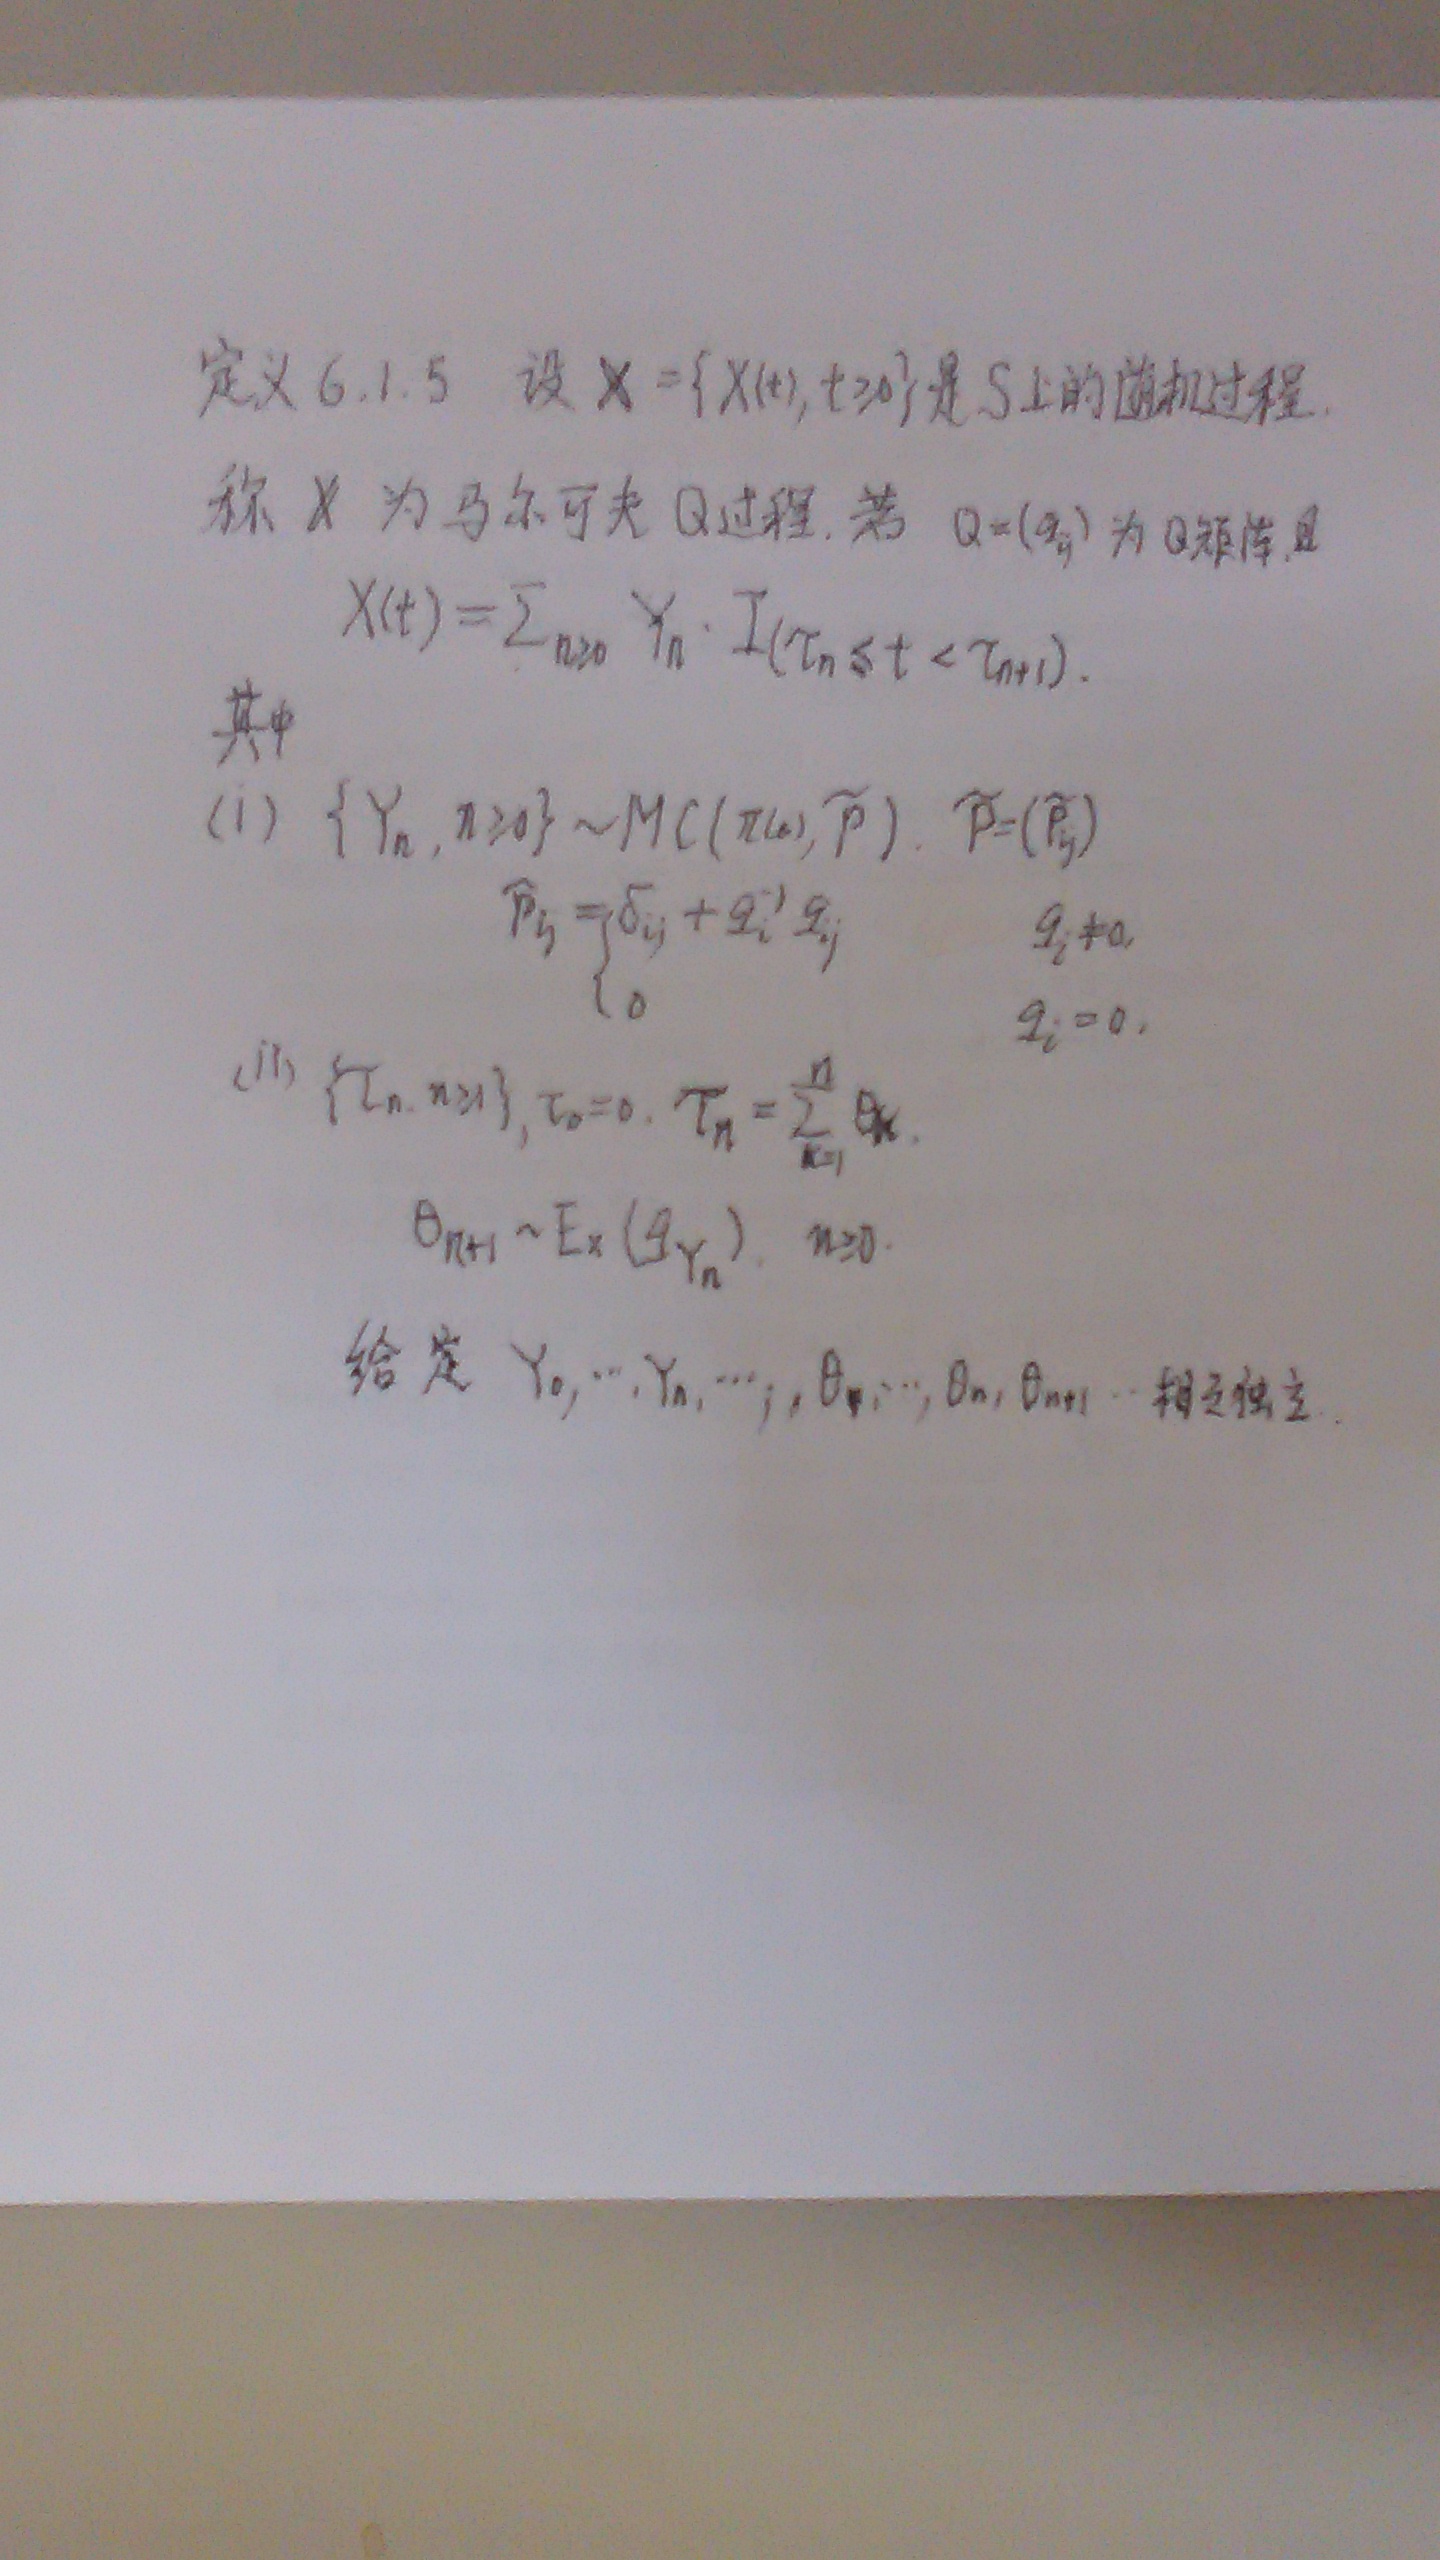 定义6.1.5 设 X={X(t), t≥0}是S上的随机过程.
称 X 为马尔可夫Q过程. 若 Q=(q_ij) 为Q矩阵,且
X(t) = Σ_{n≥0} Y_n · I(τ_n ≤ t < τ_{n+1}).
其中
(i) {Y_n, n≥0} ~ MC(π(0), P̃). P̃=(P̃_ij)
P̃_ij = { δ_ij + q_i^{-1} q_ij q_i≠0,
0 q_i=0.
(ii) {τ_n, n≥1}, τ_0=0. τ_n = Σ_{k=1}^{n} θ_k.
θ_{n+1} ~ Ex(q_{Y_n}). n≥0.
给定 Y_0, …, Y_n, …; , θ_1, …, θ_n, θ_{n+1} … 相互独立.